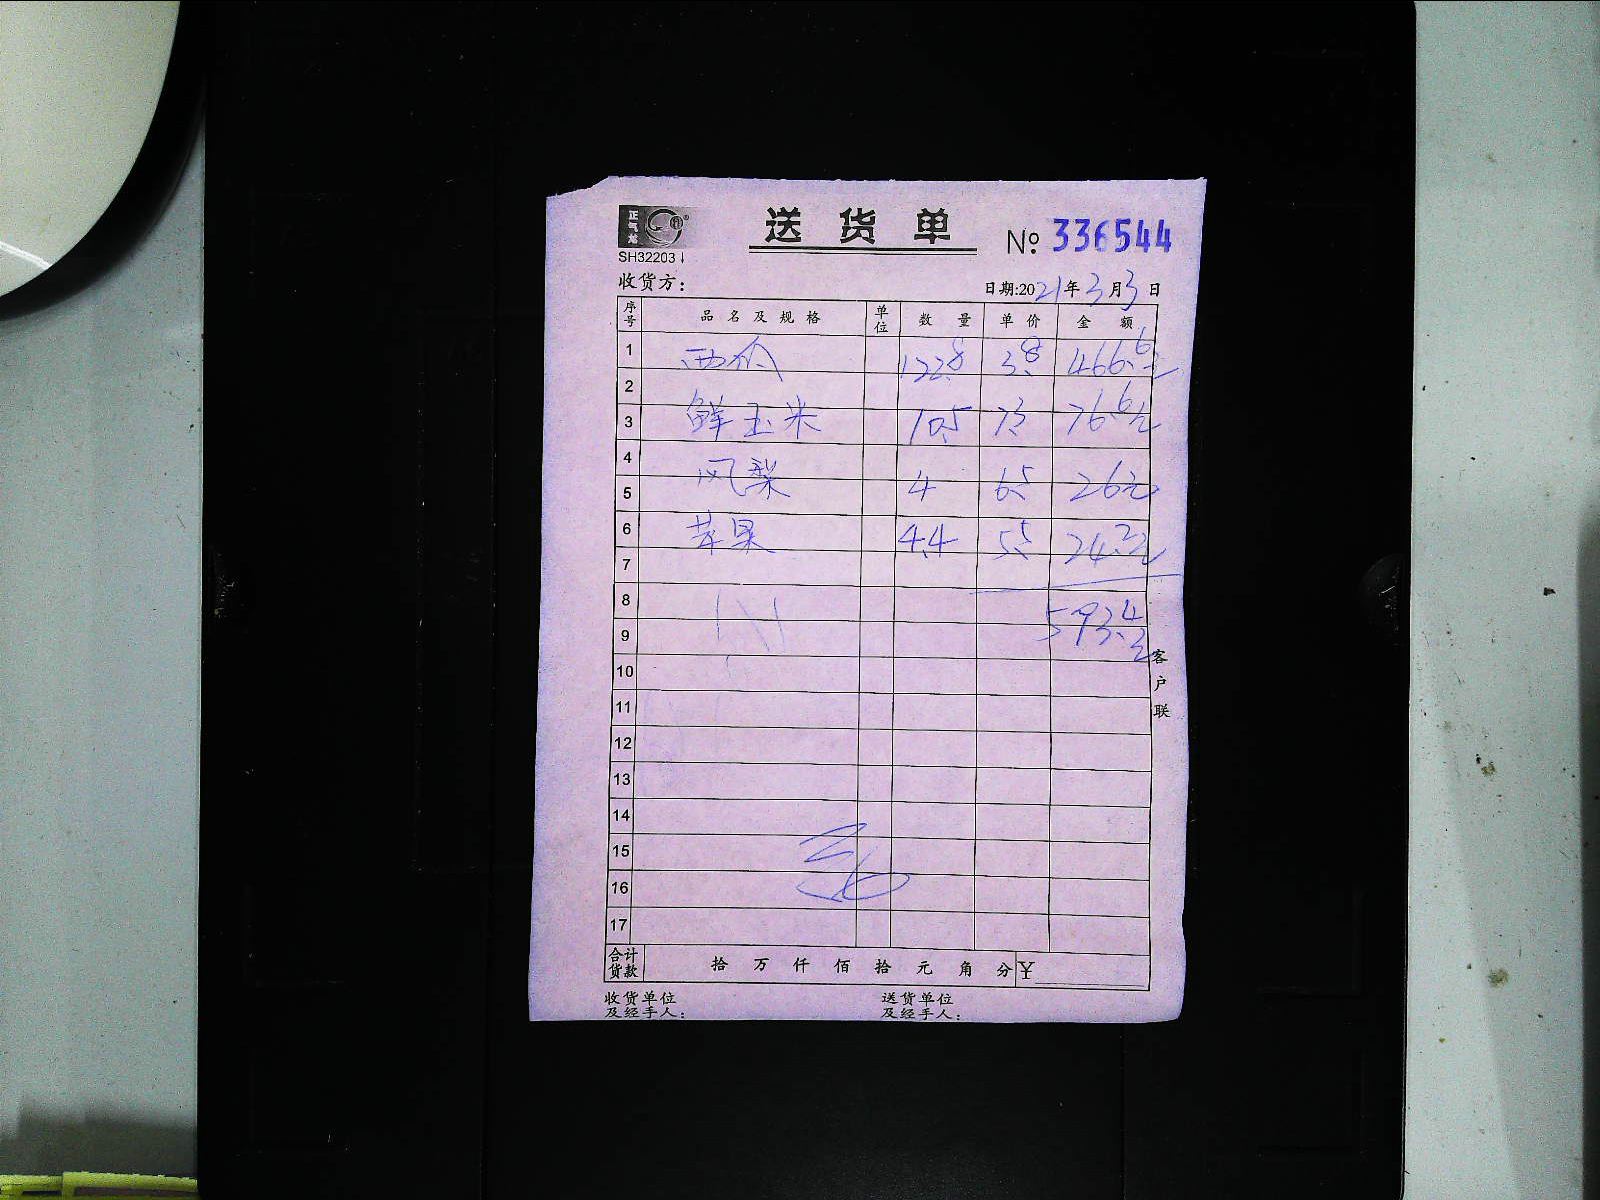 正气炫
SH32203
送货单
№ 336544
收货方：
日期:2021年3月3日
序号 品名及规格 单位 数量 单价 金额
1 西瓜 122.8 3.8 466.6元
2
3 鲜玉米 10.5 7.3 76.6元
4
5 凤梨 4 6.5 26元
6 苹果 4.4 5.5 24.2元
7
8 593.4元
9
10
11
12
13
14
15
16
17
客户联
合计货款 拾 万 仟 佰 拾 元 角 分 ¥
收货单位及经手人： 送货单位及经手人：